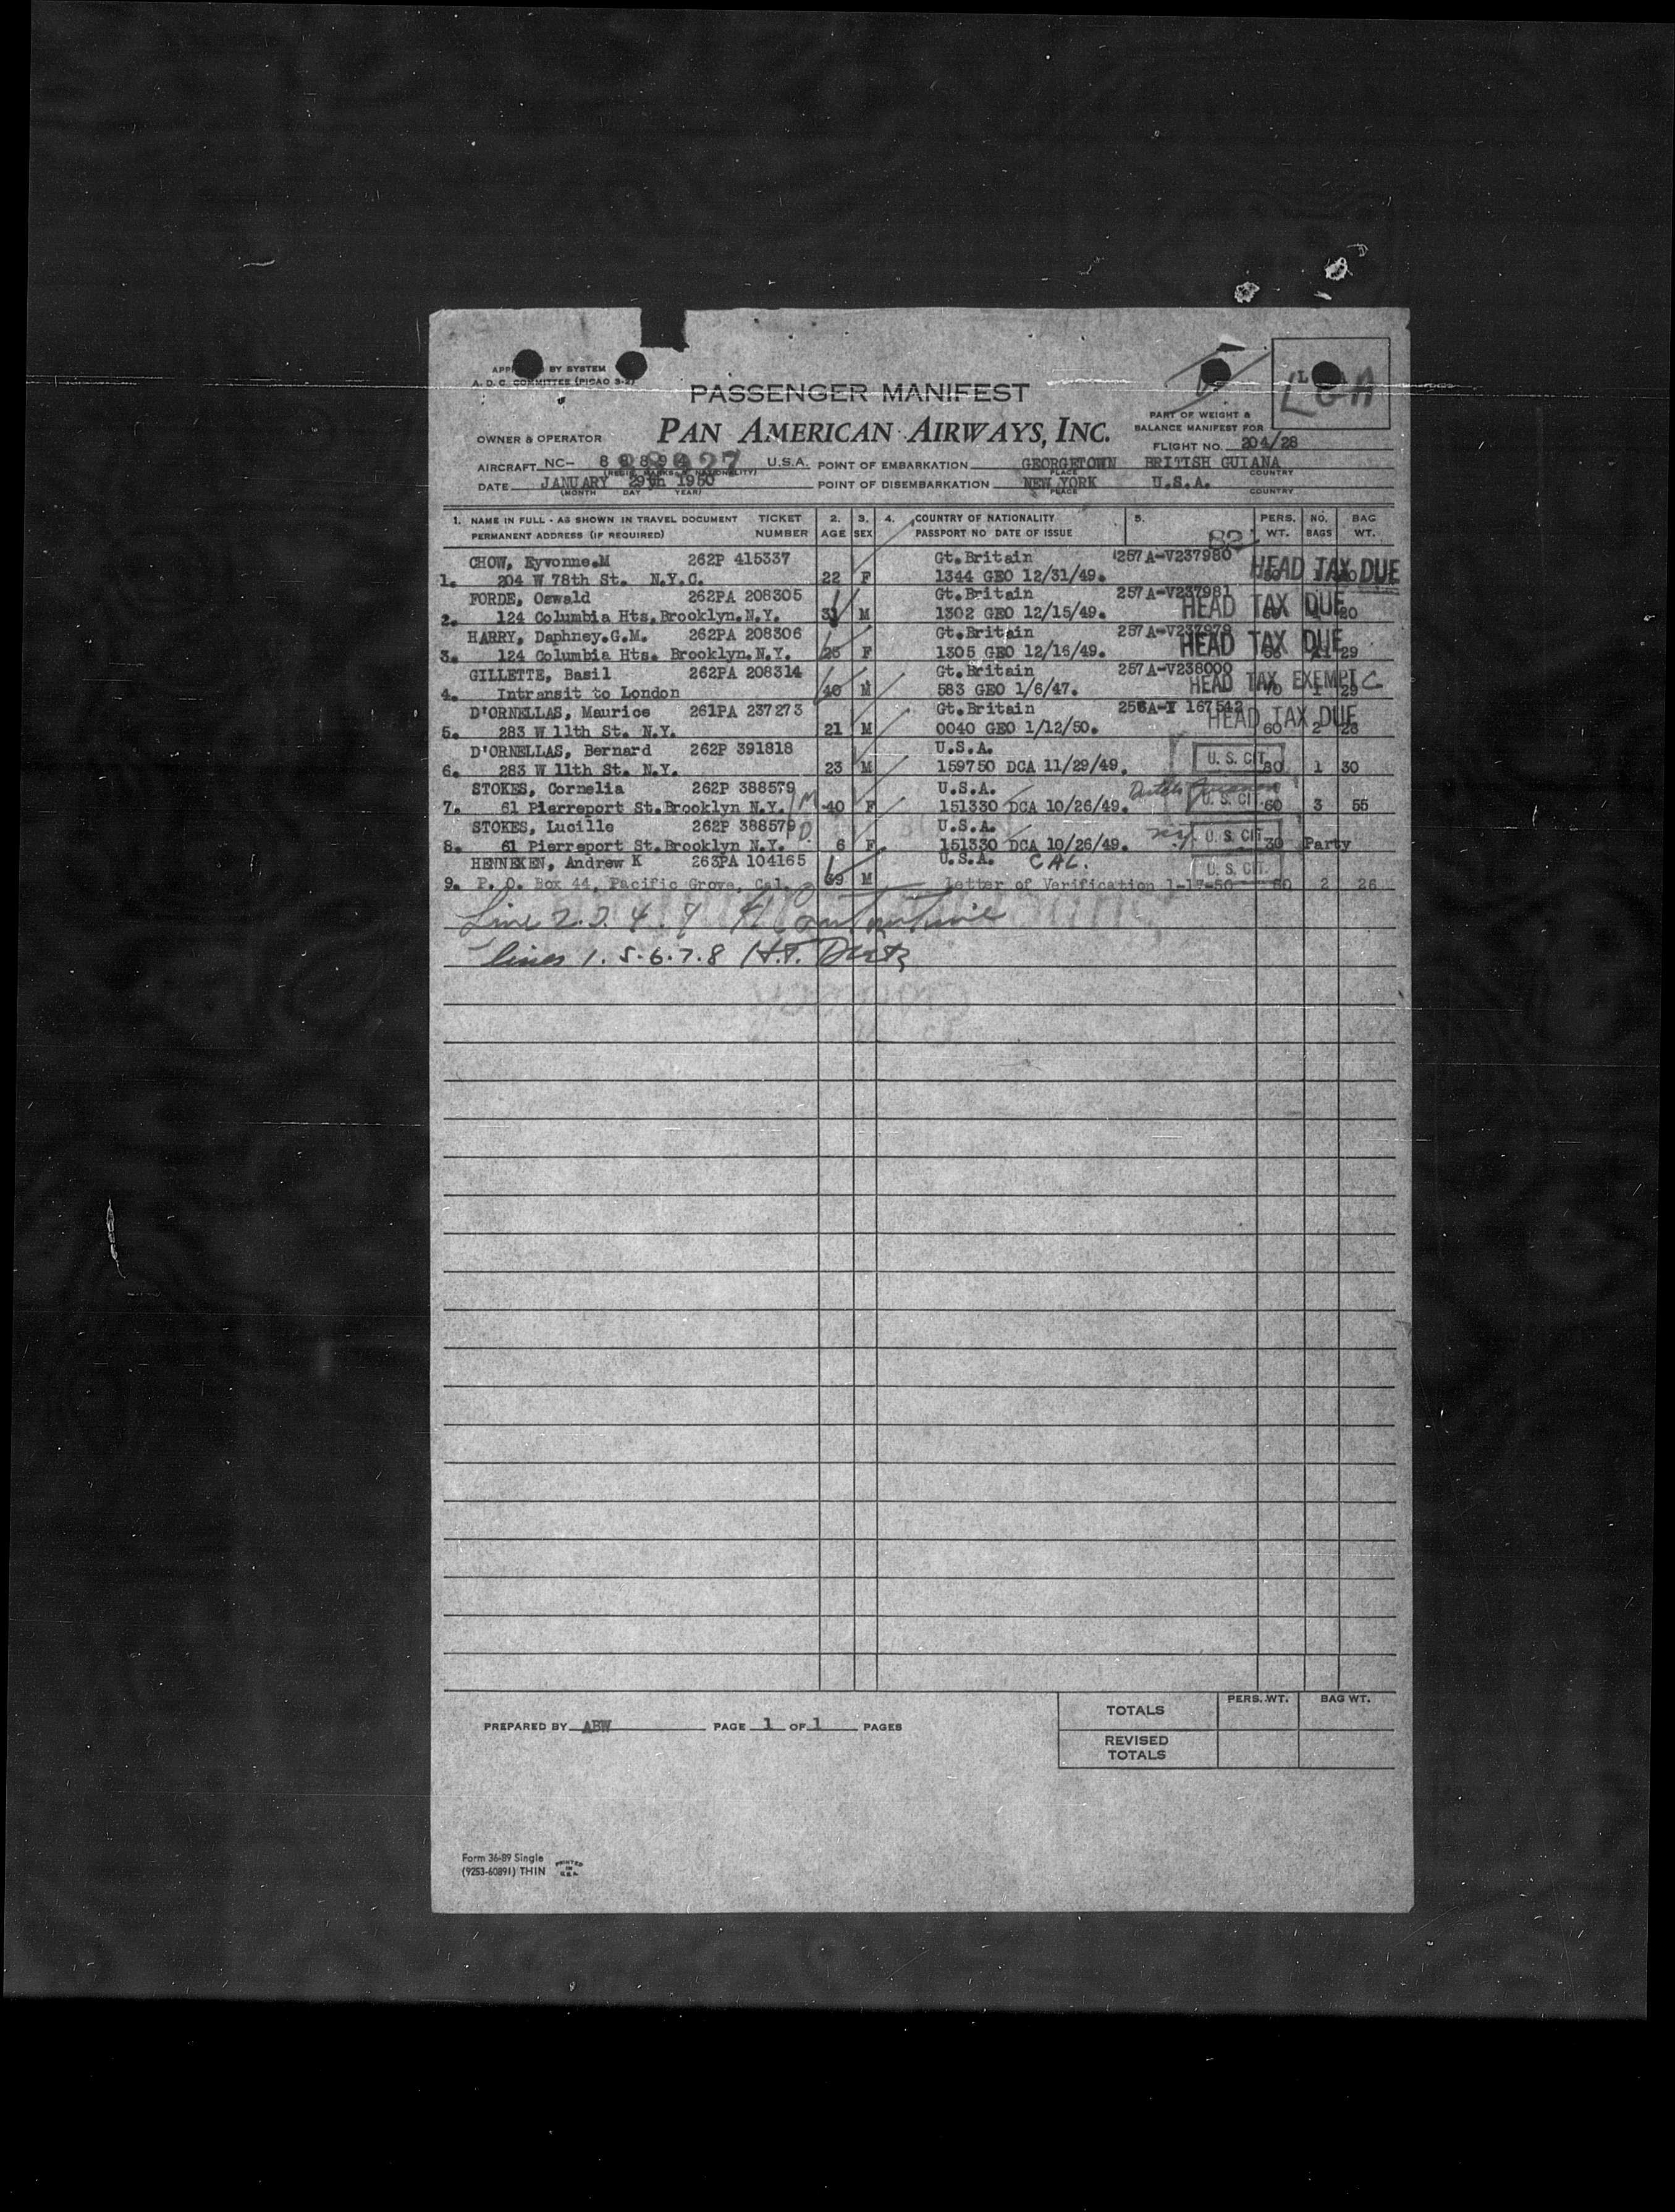 APP BY SYSTEM
A. D. C. COMMITTEE (PICAO 3-2)
PASSENGER MANIFEST
LGA
PART OF WEIGHT &
BALANCE MANIFEST FOR
OWNER & OPERATOR PAN AMERICAN AIRWAYS, INC.
FLIGHT NO. 204/28
AIRCRAFT NC- U.S.A. POINT OF EMBARKATION GEORGETOWN BRITISH GUIANA
(REGIS. MARKS & NATIONALITY) PLACE COUNTRY
DATE JANUARY 29th 1950 POINT OF DISEMBARKATION NEW YORK U.S.A.
(MONTH DAY YEAR) PLACE COUNTRY
1. NAME IN FULL - AS SHOWN IN TRAVEL DOCUMENT TICKET 2. 3. 4. COUNTRY OF NATIONALITY 5. PERS. NO. BAG
PERMANENT ADDRESS (IF REQUIRED) NUMBER AGE SEX PASSPORT NO DATE OF ISSUE WT. BAGS WT.
82
CHOW, Eyvonne.M 262P 415337 Gt.Britain 257A-V237980 HEAD TAX DUE
1. 204 W 78th St. N.Y.C. 22 F 1344 GEO 12/31/49.
FORDE, Oswald 262PA 208305 Gt.Britain 257A-V237981 HEAD TAX DUE
2. 124 Columbia Hts.Brooklyn.N.Y. 31 M 1302 GEO 12/15/49. 20
HARRY, Daphney.G.M. 262PA 208306 Gt.Britain 257A-V237979 HEAD TAX DUE
3. 124 Columbia Hts. Brooklyn.N.Y. 25 F 1305 GEO 12/16/49. 29
GILLETTE, Basil 262PA 208314 Gt.Britain 257A-V238000 HEAD TAX EXEMPT C
4. Intransit to London 40 M 583 GEO 1/6/47. 70 1 29
D'ORNELLAS, Maurice 261PA 237273 Gt.Britain 167542 HEAD TAX DUE
5. 283 W 11th St. N.Y. 21 M 0040 GEO 1/12/50. 60 2 28
D'ORNELLAS, Bernard 262P 391818 U.S.A. U. S. CIT.
6. 283 W 11th St. N.Y. 23 M 159750 DCA 11/29/49. 80 1 30
STOKES, Cornelia 262P 388579 U.S.A. U. S. CIT
7. 61 Pierreport St.Brooklyn N.Y. M 40 F 151330 DCA 10/26/49. 60 3 55
STOKES, Lucille 262P 388579 D U.S.A. U. S. CIT.
8. 61 Pierreport St.Brooklyn N.Y. 6 F 151330 DCA 10/26/49. NY 30 Party
HENNEKEN, Andrew K 263PA 104165 U.S.A. CAL. U. S. CIT.
9. P. O. Box 44, Pacific Grove, Cal. 39 M Letter of Verification 1-17-50 80 2 26
Line 2.3.4.9
lines 1.5.6.7.8
PREPARED BY ABW PAGE 1 OF 1 PAGES
PERS. WT. BAG WT.
TOTALS
REVISED
TOTALS
Form 36-89 Single
(9253-60891) THIN
PRINTED
IN
U.S.A.